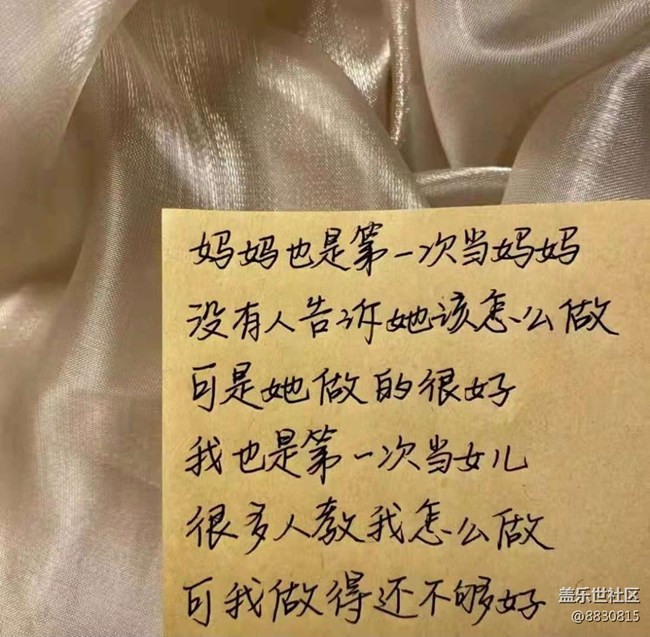 妈妈也是第一次当妈妈
没有人告诉她该怎么做
可是她做的很好
我也是第一次当女儿
很多人教我怎么做
可我做得还不够好
盖乐世社区
@8830815